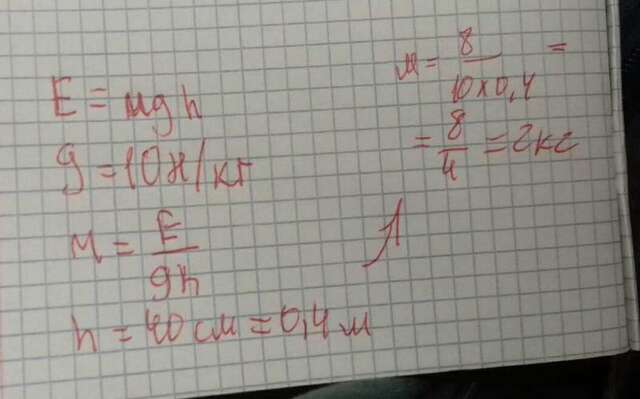 E = mgh
g = 10Н/кг
м = E/gh
h = 40 см = 0,4 м
м = 8/10×0,4 =
= 8/4 = 2кг